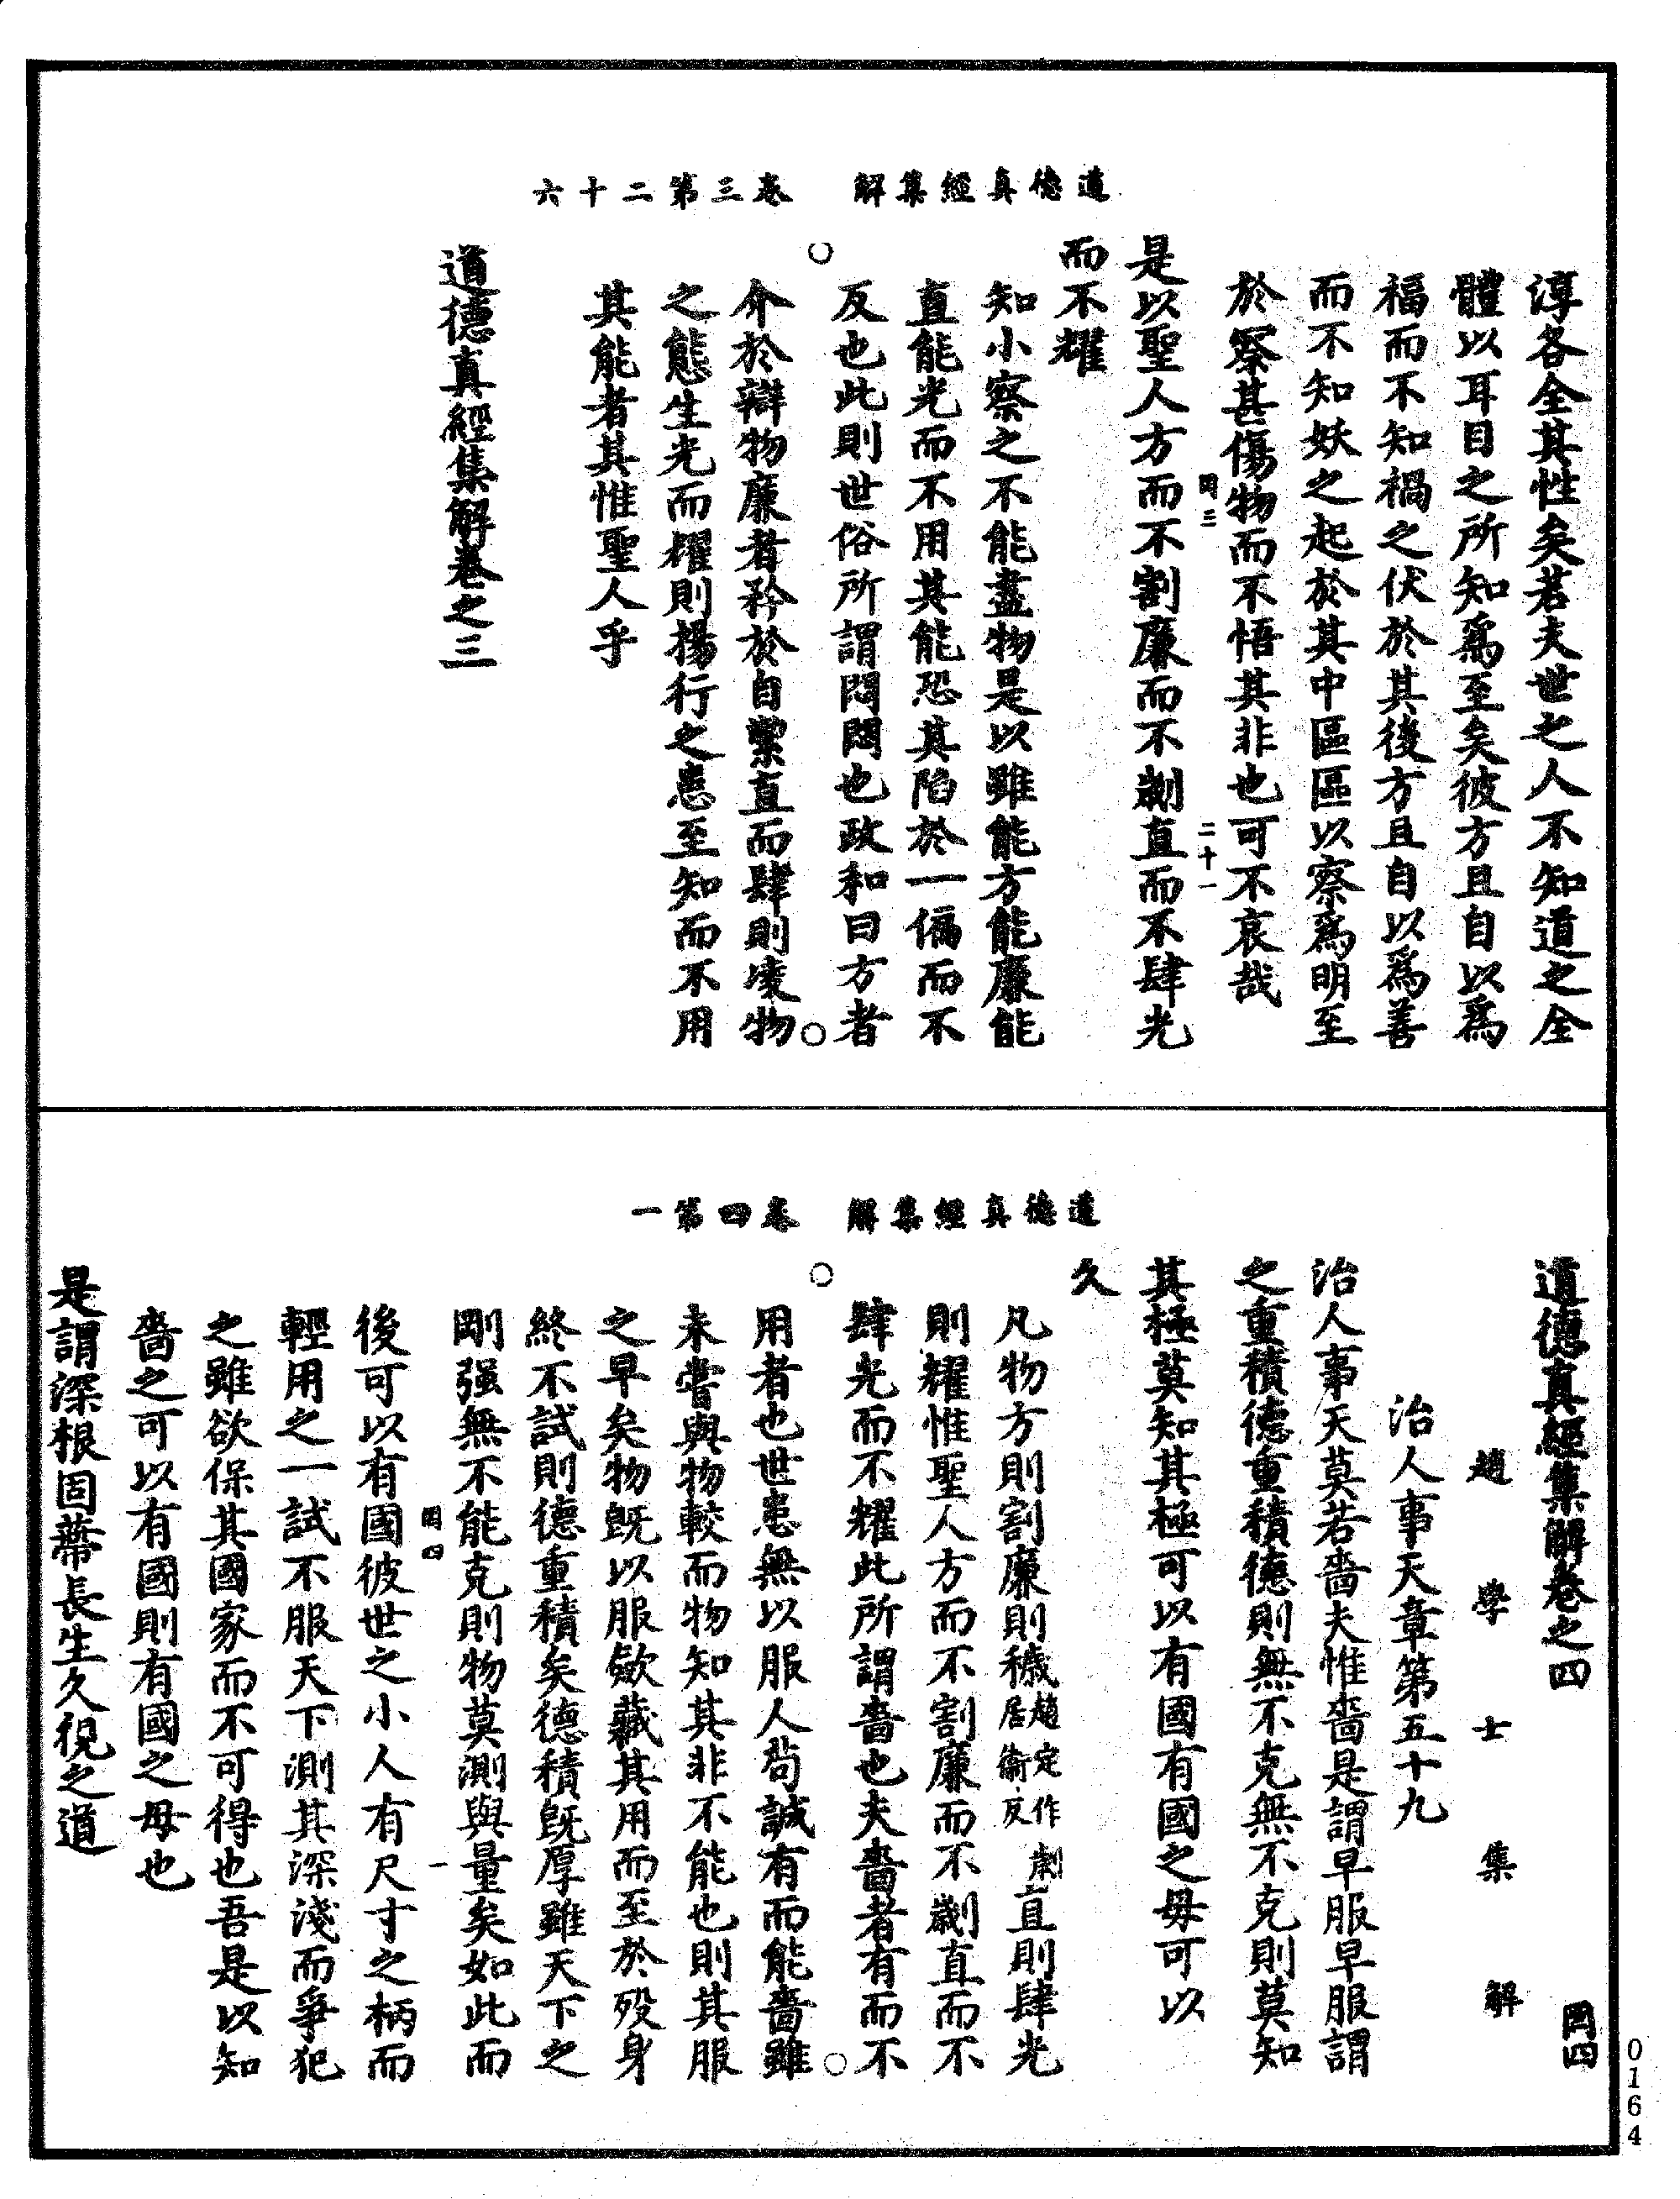 道德真經集解　卷三第二十六
淳各全其性矣若夫世之人不知道之全
體以耳目之所知爲至矣彼方且自以爲
福而不知禍之伏於其後方且自以爲善
而不知妖之起於其中區區以察爲明至
於察甚傷物而不悟其非也可不哀哉
罔三　二十一
是以聖人方而不割廉而不劌直而不肆光
而不耀
知小察之不能盡物是以雖能方能廉能
直能光而不用其能恐其陷於一偏而不
反也此則世俗所謂悶悶也政和曰方者
○　○
介於辯物廉者矜於自潔直而肆則凌物
之態生光而耀則揚行之患至知而不用
其能者其惟聖人乎
道德真經集解卷之三
道德真經集解　卷四第一
道德真經集解卷之四　罔四
趙學士集解
治人事天章第五十九
治人事天莫若嗇夫惟嗇是謂早服早服謂
之重積德重積德則無不克無不克則莫知
其極莫知其極可以有國有國之母可以
久
凡物方則割廉則穢趙定作劌居衛反直則肆光
則耀惟聖人方而不割廉而不劌直而不
肆光而不耀此所謂嗇也夫嗇者有而不
○　○
用者也世患無以服人苟誠有而能嗇雖
未嘗與物較而物知其非不能也則其服
之早矣物既以服斂藏其用而至於歿身
終不試則德重積矣德積既厚雖天下之
剛强無不能克則物莫測與量矣如此而
罔四　一
後可以有國彼世之小人有尺寸之柄而
輕用之一試不服天下測其深淺而爭犯
之雖欲保其國家而不可得也吾是以知
嗇之可以有國則有國之母也
是謂深根固蔕長生久視之道
0164